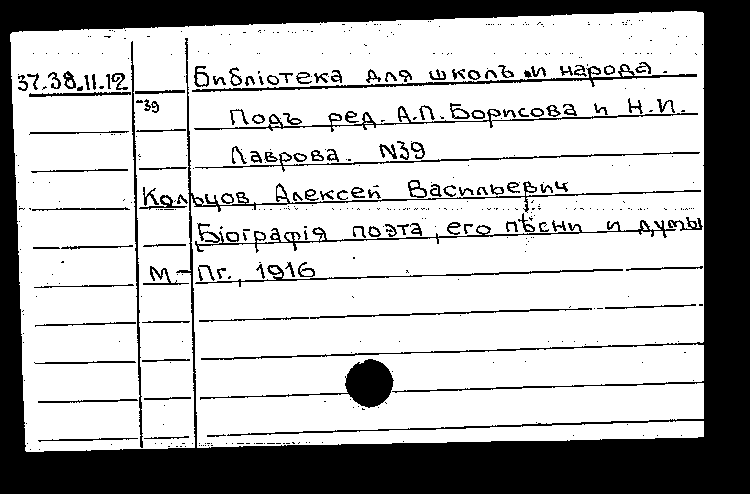 37.38.11.12 Библіотека для школъ и народа.
-39 Подъ ред. А.П. Борисова и Н.И.
Лаврова. N39
Кольцов, Алексей Васильевич
Біографія поэта, его пѣсни и думы
М.-Пг., 1916